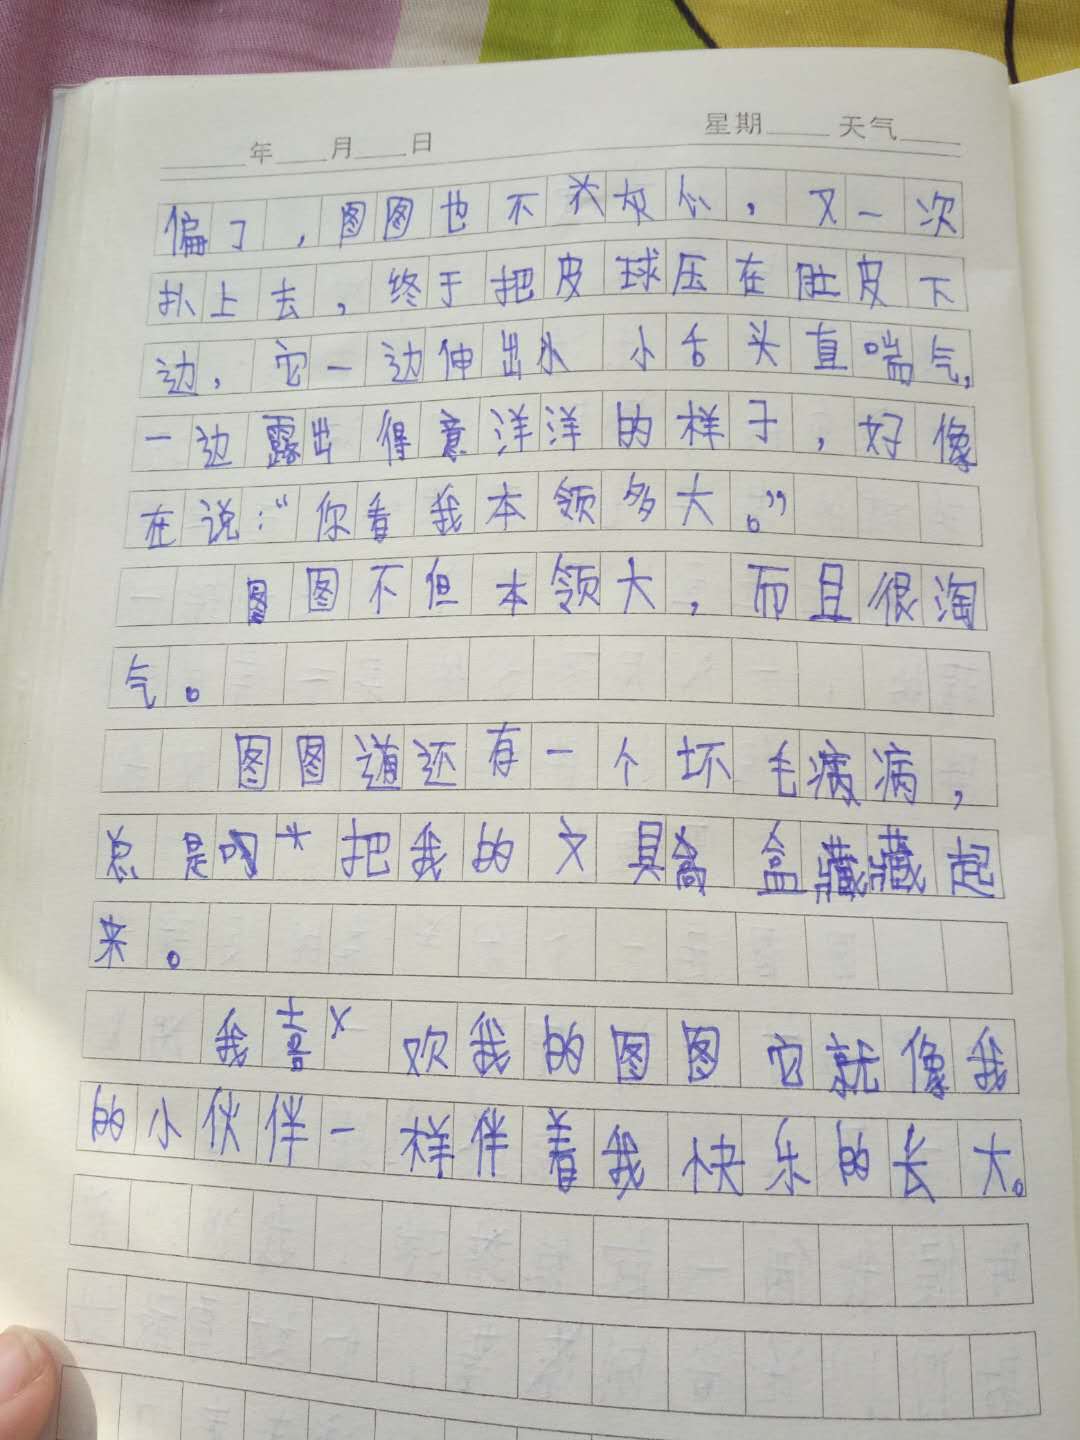 年 月 日 星期 天气
偏了，图图也不灰心，又一次
扑上去，终于把皮球压在肚皮下
边，它一边伸出 小舌头直喘气，
一边露出得意洋洋的样子，好像
在说：“你看我本领多大。”
图图不但本领大，而且很淘
气。
图图 还有一个坏毛病病，
总是 把我的文具 盒藏藏起
来。
我喜 欢我的图图 它就像我
的小伙伴一样伴着我快乐的长大。